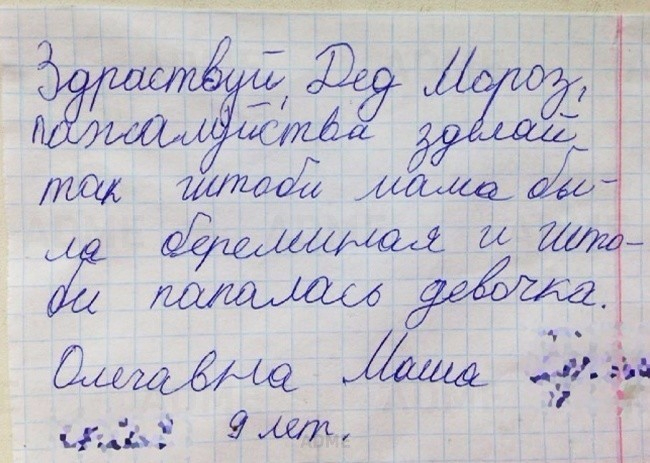 Здраствуй, Дед Мороз,
пажалуйства зделай
так штоби мама бы-
ла беременая и што-
би папалась девочка.
Олечавна Маша
9 лет.